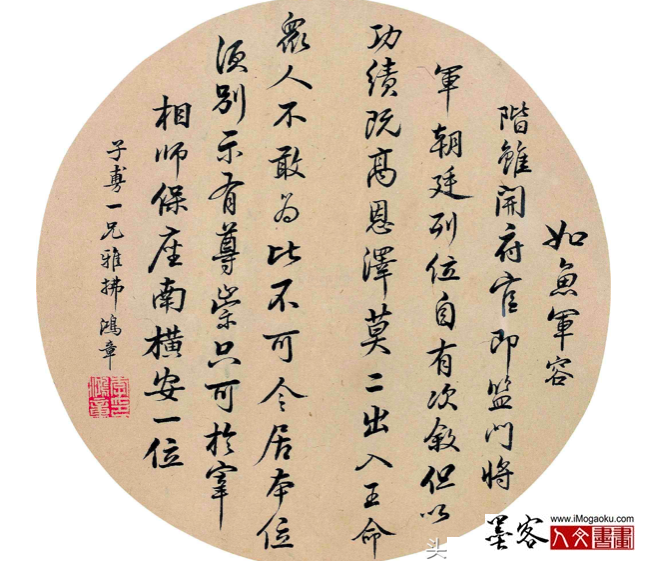 如魚軍容
階雖開府官即監門將
軍朝廷列位自有次敘但以
功績既高恩澤莫二出入王命
眾人不敢為比不可令居本位
須別示有尊崇只可於宰
相師保座南橫安一位
子一兄雅拂 鴻章
李印鴻章
头
www.iMogaoku.com
墨客
人文書畫